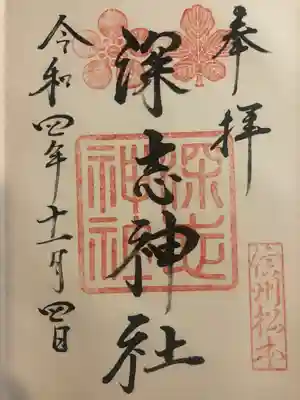 奉拝
信州松本
深志神社
深志神社
令和四年十一月四日